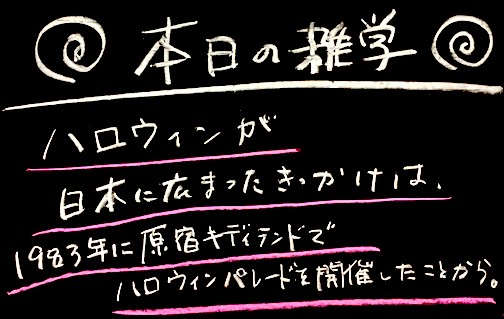 本日の雑学
ハロウィンが
日本に広まったきっかけは、
1983年に原宿キディランドで
ハロウィンパレードを開催したことから。